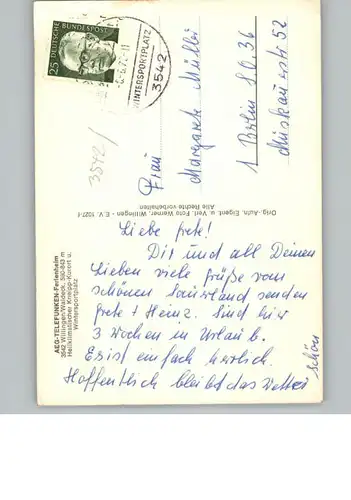 25
DEUTSCHE
BUNDESPOST
WINTERSPORTPLATZ
3542
3542/
Frau
Margarete Müller
1 Berlin S.O. 36
Muskauerstr 52
Orig.-Aufn. Eigent. u. Verl. Foto Werner, Willingen - E.V. 1027-f
Alle Rechte vorbehalten
AEG-TELEFUNKEN-Ferienheim
3542 Willingen/Waldeck, 560-843 m
Heilklimatischer Kneipp-Kurort u.
Wintersportplatz
Liebe Grete!
Dir und all Deinen
Lieben viele Grüße vom
schönen Sauerland senden
Grete + Heinz. Sind hier
3 Wochen in Urlaub.
Es ist einfach herrlich.
Hoffentlich bleibt das Wetter
schön